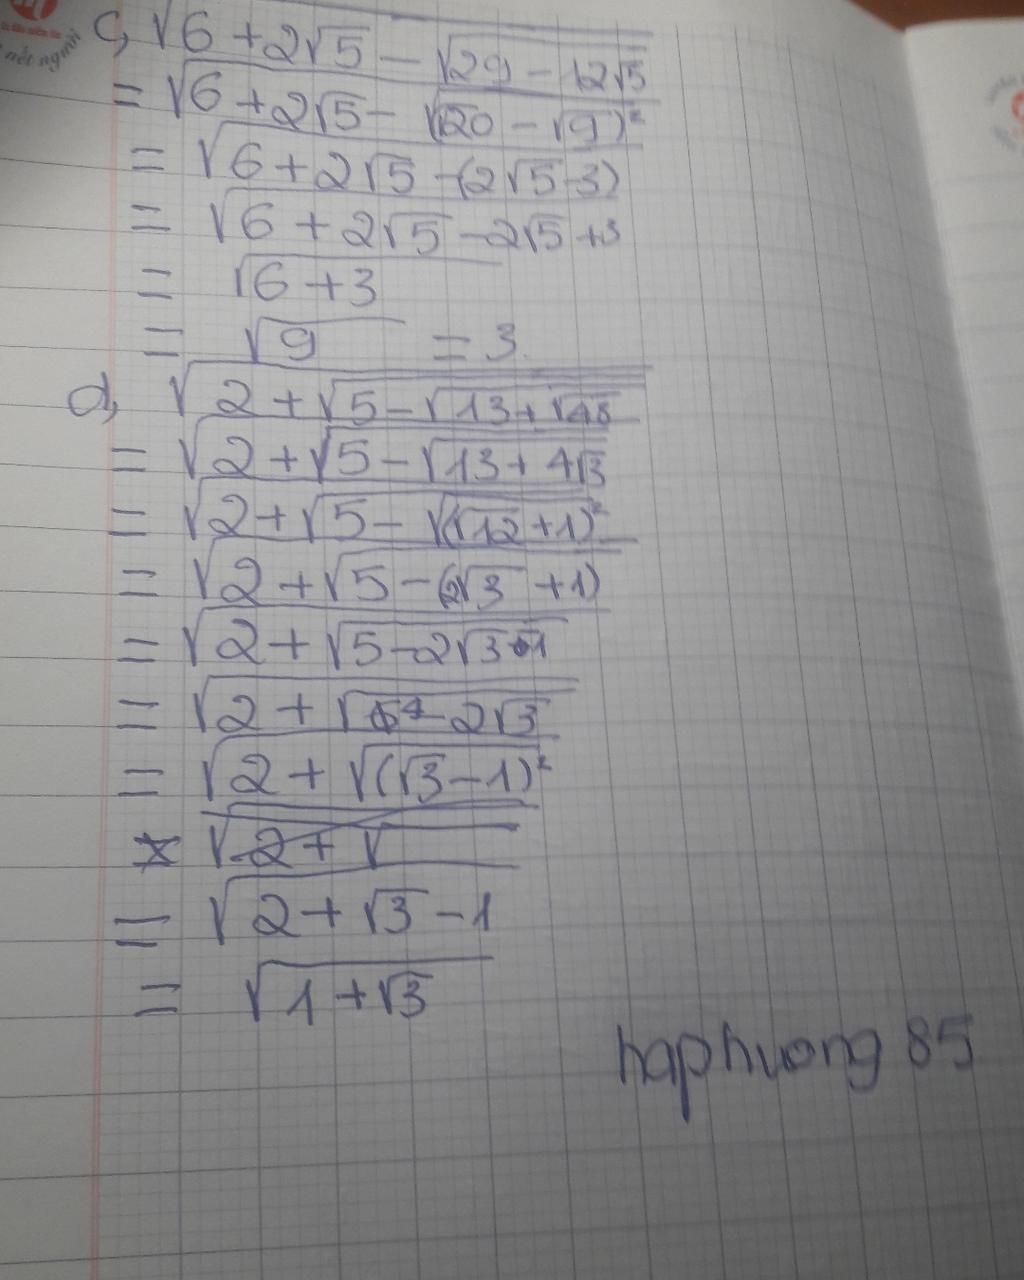 nét người
c, √6 + 2√5 - √29 - 12√5
= √6 + 2√5 - √(√20 - √9)²
= √6 + 2√5 - (2√5 - 3)
= √6 + 2√5 - 2√5 + 3
= √6 + 3
= √9 = 3
d, √2 + √5 - √13 + √48
= √2 + √5 - √13 + 4√3
= √2 + √5 - √(√12 + 1)²
= √2 + √5 - (2√3 + 1)
= √2 + √5 - 2√3 - 1
= √2 + √4 - 2√3
= √2 + √(√3 - 1)²
√2 + √
= √2 + √3 - 1
= √1 + √3
haphuong 85